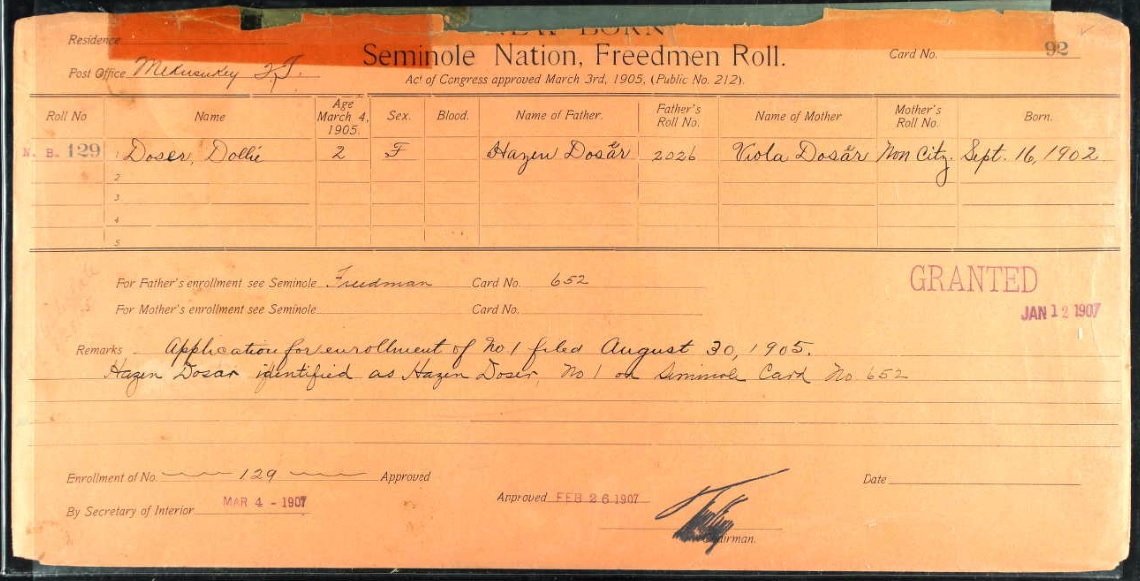 NEW BORN
Residence
Seminole Nation, Freedmen Roll.
Card No. 92
Post Office Mekusukey I.T.
Act of Congress approved March 3rd, 1905, (Public No. 212).
Roll No Name Age March 4, 1905. Sex. Blood. Name of Father. Father's Roll No. Name of Mother Mother's Roll No. Born.
N. B. 129 1 Doser, Dollie 2 F Hazen Dosar 2026 Viola Dosar Non Citz. Sept. 16, 1902
2
3
4
5
For Father's enrollment see Seminole Freedman Card No. 652
GRANTED
For Mother's enrollment see Seminole Card No.
JAN 12 1907
Remarks Application for enrollment of No 1 filed August 30, 1905.
Hazen Dosar identified as Hazen Doser, No 1 on Seminole Card No 652
Enrollment of No. 129 Approved
Date
MAR 4 - 1907
Approved FEB 26 1907
By Secretary of Interior
Chairman.